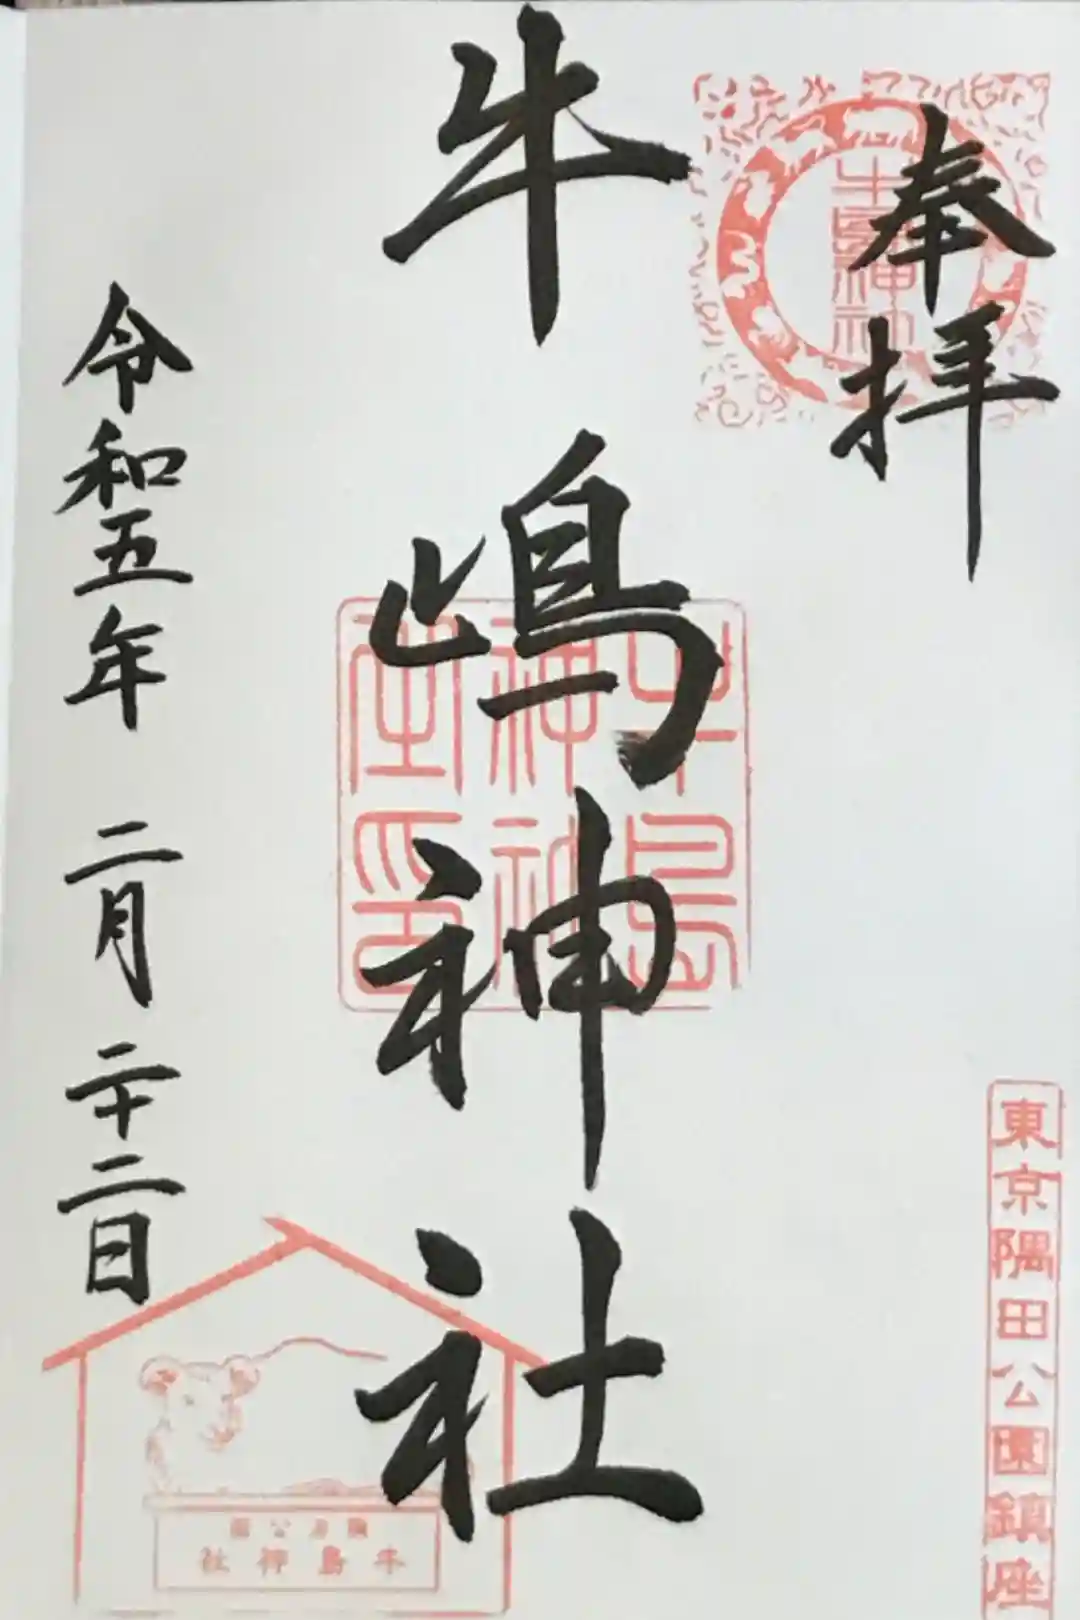 奉拝
牛嶋神社
令和五年 二月 二十二日
牛嶋神社
牛島神社社印
東京隅田公園鎮座
隅田公園
牛島神社